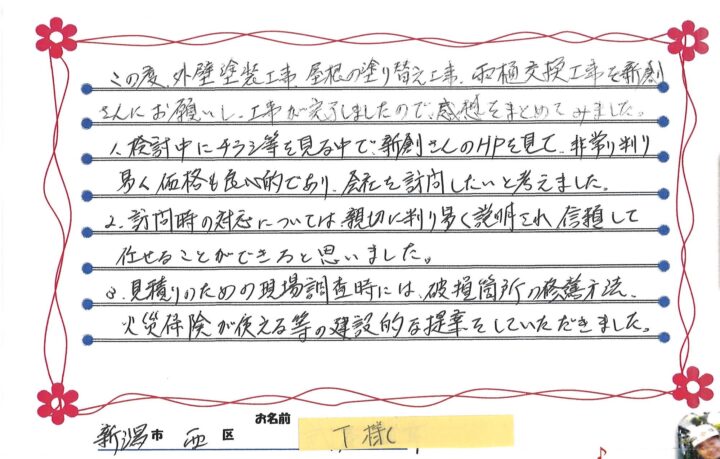 この度、外壁塗装工事、屋根の塗り替え工事、雨樋交換工事を新創
さんにお願いし、工事が完了しましたので、感想をまとめてみました。
1. 検討中にチラシ等を見る中で、新創さんのHPを見て、非常に判り
易く価格も良心的であり、会社を訪問したいと考えました。
2. 訪問時の対応については、親切に判り易く説明され、信頼して
任せることができると思いました。
3. 見積りのための現場調査時には、破損箇所の修繕方法、
火災保険が使える等の建設的な提案をしていただきました。
お名前
新潟市 西区 T様